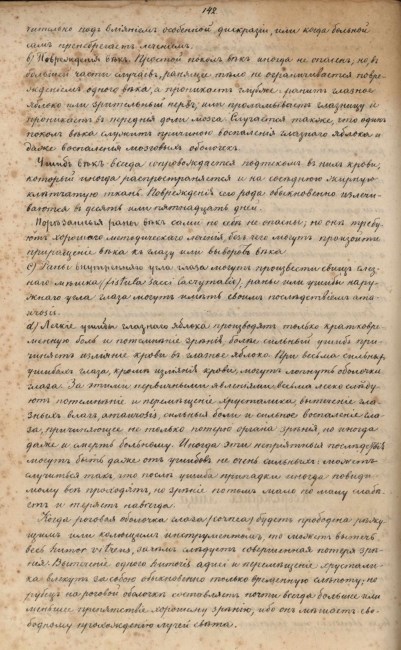 142
только подъ вліяніемъ особенной дискразіи, или когда больной
самъ пренебрегаетъ леченіемъ.
b) Поврежденія вѣкъ. Простой уколъ вѣкъ иногда не опасенъ; но, въ
большей части случаевъ, ранящее тѣло не ограничивается повре-
жденіемъ одного вѣка, а проникаетъ глубже, ранитъ глазное
яблоко или зрительный нервъ, или проламываетъ глазницу и
проникаетъ въ переднія доли мозга. Случается также, что одинъ
уколъ вѣка служитъ причиною воспаленія глазнаго яблока и
даже воспаленія мозговыхъ оболочекъ.
Ушибъ вѣкъ всегда сопровождается подтекомъ въ нихъ крови,
который иногда распространяется и на сосѣднюю жирную
клѣтчатую ткань. Поврежденія сего рода обыкновенно излечи-
ваются въ десять или пятнадцать дней.
Порѣзанныя раны вѣкъ сами по себѣ не опасны; но онѣ требу-
ютъ хорошаго методическаго леченія, безъ чего могутъ произойти
приращеніе вѣка къ глазу или выворотъ вѣка.
c) Раны внутренняго угла глаза могутъ произвести свищъ слез-
наго мѣшка (fistula sacci lacrymalis), раны или ушибы нару-
жнаго угла глаза могутъ имѣть своимъ послѣдствіемъ

d) Легкіе ушибы глазнаго яблока производятъ только кратковре-
менную боль и потемнѣніе зрѣнія, болѣе сильный ушибъ при-
чиняетъ изліяніе крови въ глазное яблоко. При весьма сильныхъ
ушибахъ глаза, кромѣ изліянія крови, могутъ лопнуть оболочки
глаза. За этими первичными явленіями весьма легко слѣду-
ютъ потемнѣніе и перемѣщеніе хрусталика, вытеченіе гла-
зныхъ влагъ, сильныя боли и сильное воспаленіе гла-
за, причиняющее не только потерю органа зрѣнія, но иногда
даже и смерть больному. Иногда эти непріятныя послѣдствія
могутъ быть даже отъ ушибовъ не очень сильныхъ: можетъ
случиться такъ, что послѣ ушиба припадки иногда повиди-
мому всѣ проходятъ, но зрѣніе потомъ мало по малу слабѣ-
етъ и теряется навсегда.
Когда роговая оболочка глаза (cornea) будетъ прободена рѣжу-
щимъ или колющимъ инструментомъ, то можетъ вытечь
весь humor vitreus, затѣмъ слѣдуетъ совершенная потеря зрѣ-
нія. Вытеченіе одной и перемѣщеніе хрустали-
ка влекутъ за собою обыкновенно только временную слѣпоту; но
рубецъ на роговой оболочкѣ составляетъ почти всегда большее или
меньшее препятствіе хорошему зрѣнію, ибо онъ мѣшаетъ сво-
бодному прохожденію лучей свѣта.